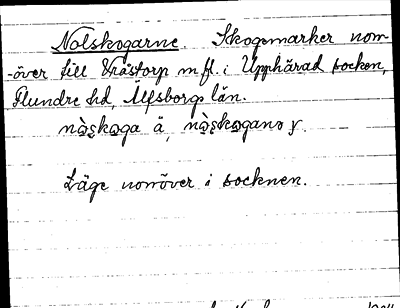 Nolskogarne. Skogsmarker norr-
-över till Tråstorp m fl. i Upphärad socken,
Flundre hd, Älfsborgs län.
nɷ̀ʂkoga ä, nɷ̀ʂkogano y.
Läge norröver i socknen.